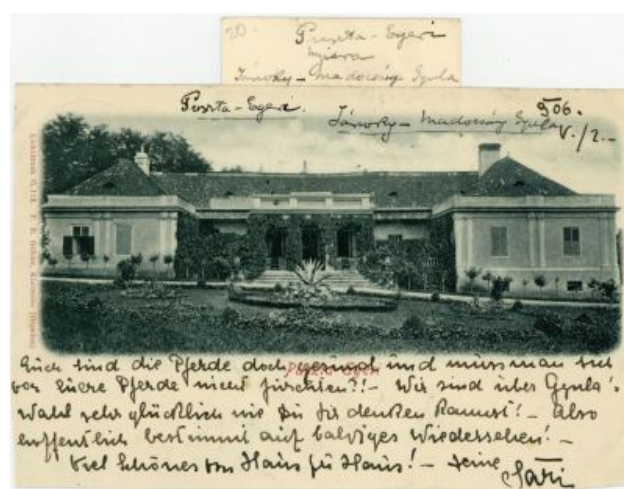 Puszta-Egeri
nyisra
Jánoky-Madocsány Gyula
Puszta-Egeri.
Jánoky-Madocsány Gyula
906.
V./2.-
Puszta Egeri
Euch sind die Pferde doch gesund und muss man sich
von Euere Pferde nicht fürchten?!- Wir sind über Gyula's
Wahl sehr glücklich wie Du Dir denken kannst!- Also
hoffentlich bestimmt auf baldiges Wiedersehen!-
Viel Schönes von Haus zu Haus!- Deine
Sári